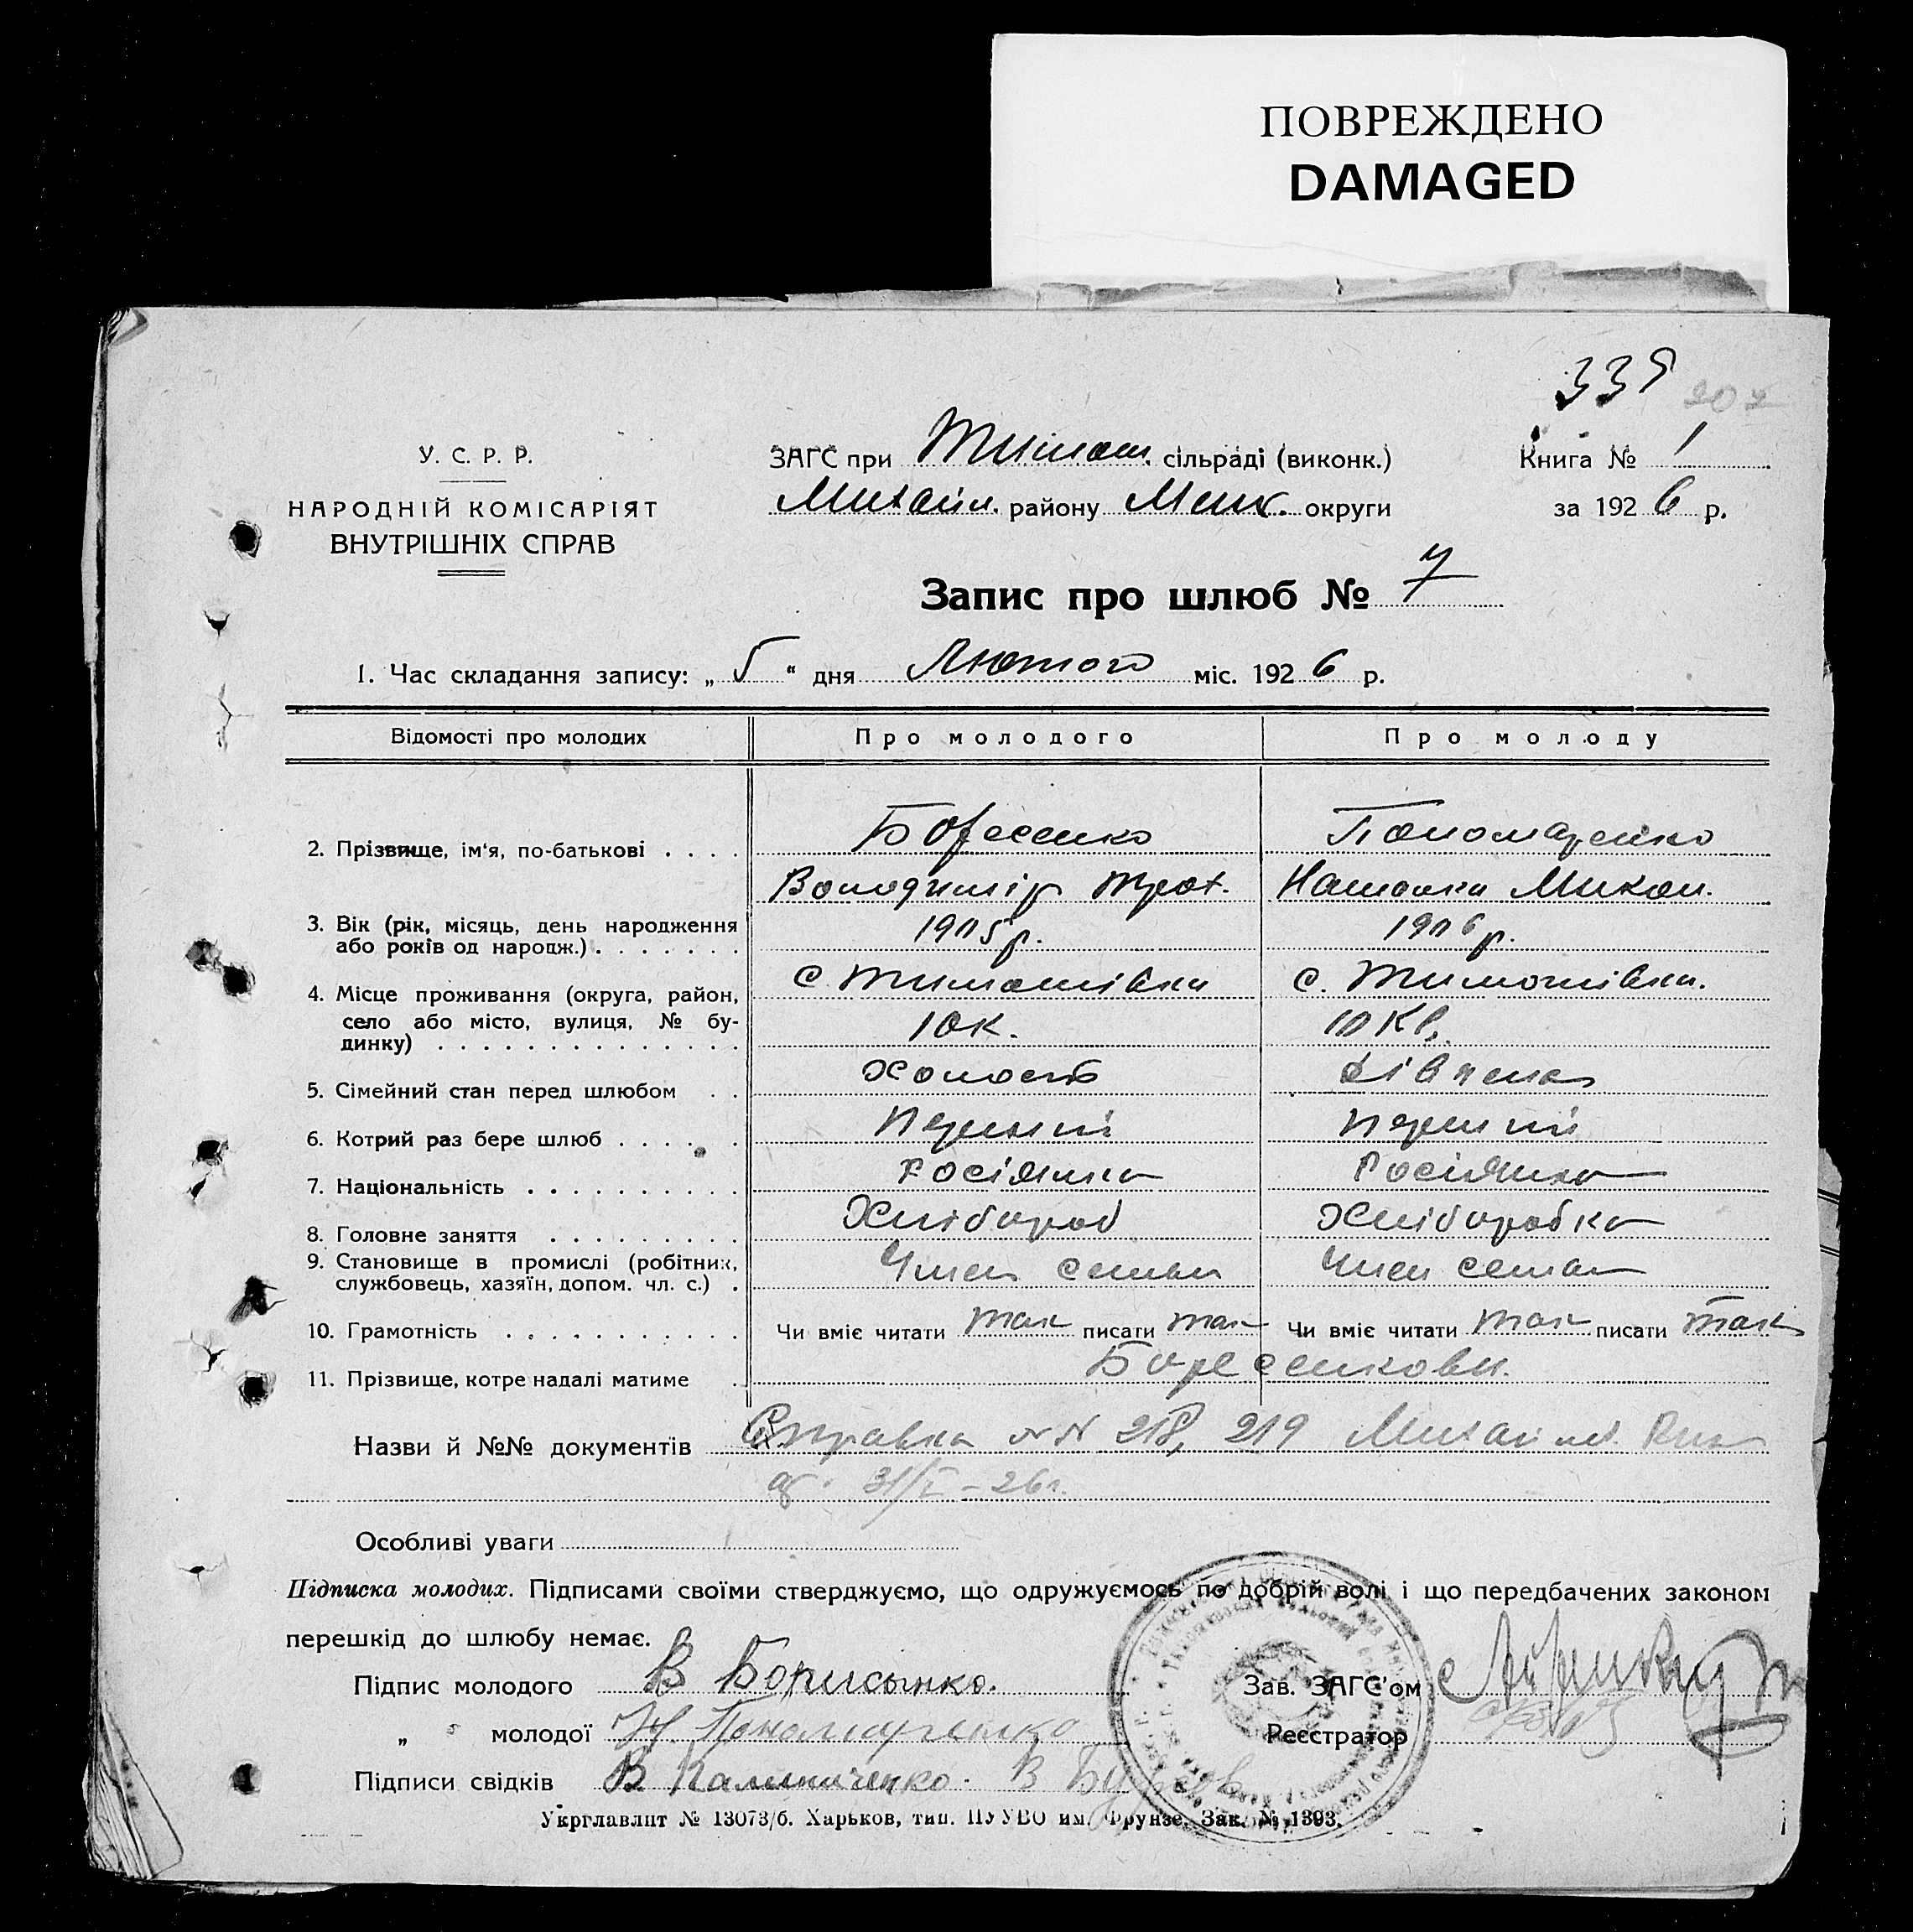 ПОВРЕЖДЕНО
DAMAGED
335 207
У. С. Р. Р.
НАРОДНІЙ КОМІСАРІЯТ
ВНУТРІШНІХ СПРАВ
ЗАГС при Тимош. сільраді (виконк.)
Михайл. району Меліт. округи
Книга № 1
за 1926 р.
Запис про шлюб № 7
1. Час складання запису: „ 5 “ дня Лютого міс. 1926 р.
Відомості про молодих Про молодого Про молоду
2. Прізвище, ім'я, по-батькові . . . . Боресенко Пономаренко
Володимір Трох. Наталка Микол.
3. Вік (рік, місяць, день народження
або років од народж.) . . . . . . . 1905 р. 1906 р.
4. Місце проживання (округа, район,
село або місто, вулиця, № бу-
динку) . . . . . . . . . . . . . . с. Тимошівка с. Тимошівка.
10 к. 10 кв.
5. Сімейний стан перед шлюбом . . Холост Дівчена
6. Котрий раз бере шлюб . . . . . . Перший Перший
7. Національність . . . . . . . . . . Росіянка Росіянка
8. Головне заняття . . . . . . . . . Хлібороб Хлiборобка
9. Становище в промислі (робітник,
службовець, хазяїн, допом. чл. с.) . Член семьи Член семьи
10. Грамотність . . . . . . . . . . . Чи вміє читати так писати так Чи вміє читати так писати так
11. Прізвище, котре надалі матиме . Боресенкови.
Назви й №№ документів Справка №№ 218, 219 Михайл.
31/I – 26 г.
Особливі уваги
Підписка молодих. Підписами своїми стверджуємо, що одружуємось по добрій волі і що передбачених законом
перешкід до шлюбу немає.
Підпис молодого В Борисынко. Зав. ЗАГС'ом
„ молодої Н. Пономаренко Реєстратор
Підписи свідків В Калиниченко. В
Укрглавлит № 13073/б. Харьков, тип. ПУУВО им. Фрунзе. Зак. № 1393.